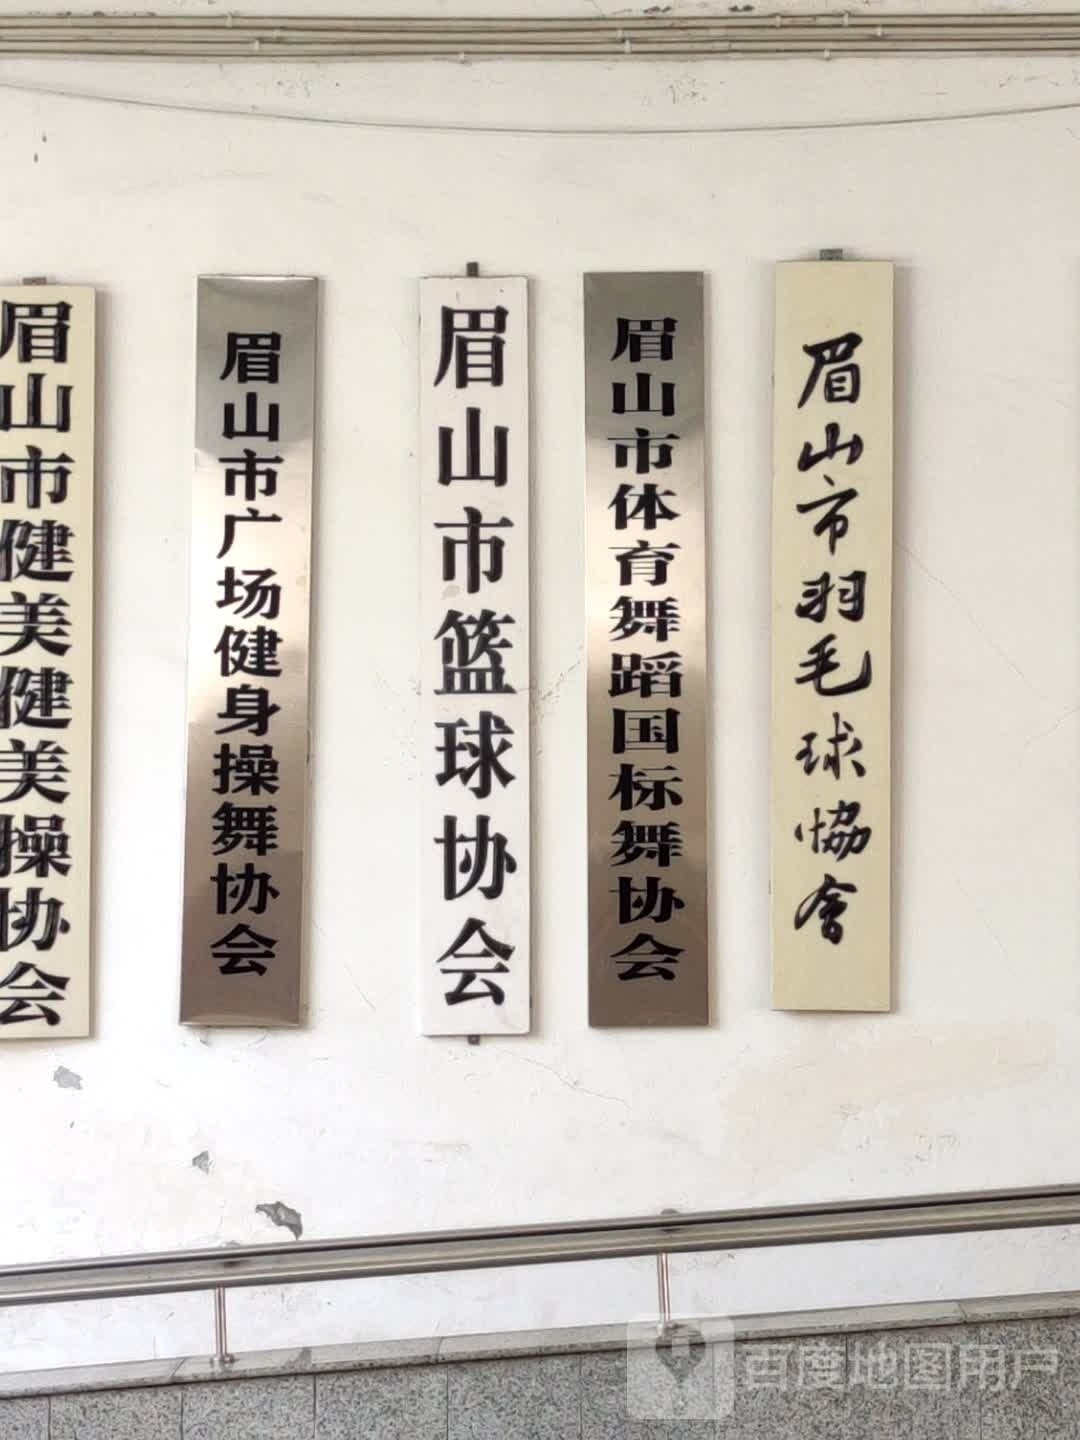 眉山市健美健美操协会
眉山市广场健身操舞协会
眉山市篮球协会
眉山市体育舞蹈国标舞协会
眉山市羽毛球協會
百度地图用户